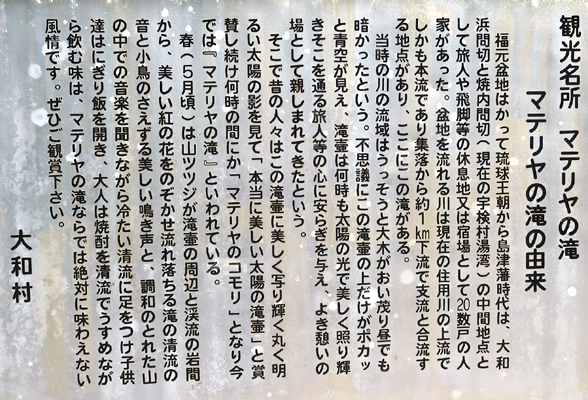 観光名所　マテリヤの滝
マテリヤの滝の由来
福元盆地はかって琉球王朝から島津藩時代は、大和
浜間切と焼内間切（現在の宇検村湯湾）の中間地点と
して旅人や飛脚等の休息地又は宿場として20数戸の人
家があった。盆地を流れる川は現在の住用川の上流で
しかも本流であり集落から約1㎞下流で支流と合流す
る地点があり、ここにこの滝がある。
当時の川の流域はうっそうと大木がおい茂り昼でも
暗かったという。不思議にこの滝壷の上だけがポカッ
と青空が見え、滝壷は何時も太陽の光で美しく照り輝
きそこを通る旅人等の心に安らぎを与え、よき憩いの
場として親しまれてきたという。
そこで昔の人々はこの滝壷に美しく写り輝く丸く明
るい太陽の影を見て「本当に美しい太陽の滝壷」と賞
賛し続け何時の間にか「マテリヤのコモリ」となり今
では『マテリヤの滝』といわれている。
春（5月頃）は山ツツジが滝壷の周辺と渓流の岩間
から、美しい紅の花をのぞかせ流れ落ちる滝の清流の
音と小鳥のさえずる美しい鳴き声と、調和のとれた山
の中での音楽を聞きながら冷たい清流に足をつけ子供
達はにぎり飯を開き、大人は焼酎を清流でうすめなが
ら飲む味は、マテリヤの滝ならでは絶対に味わえない
風情です。ぜひご観賞下さい。
大和村